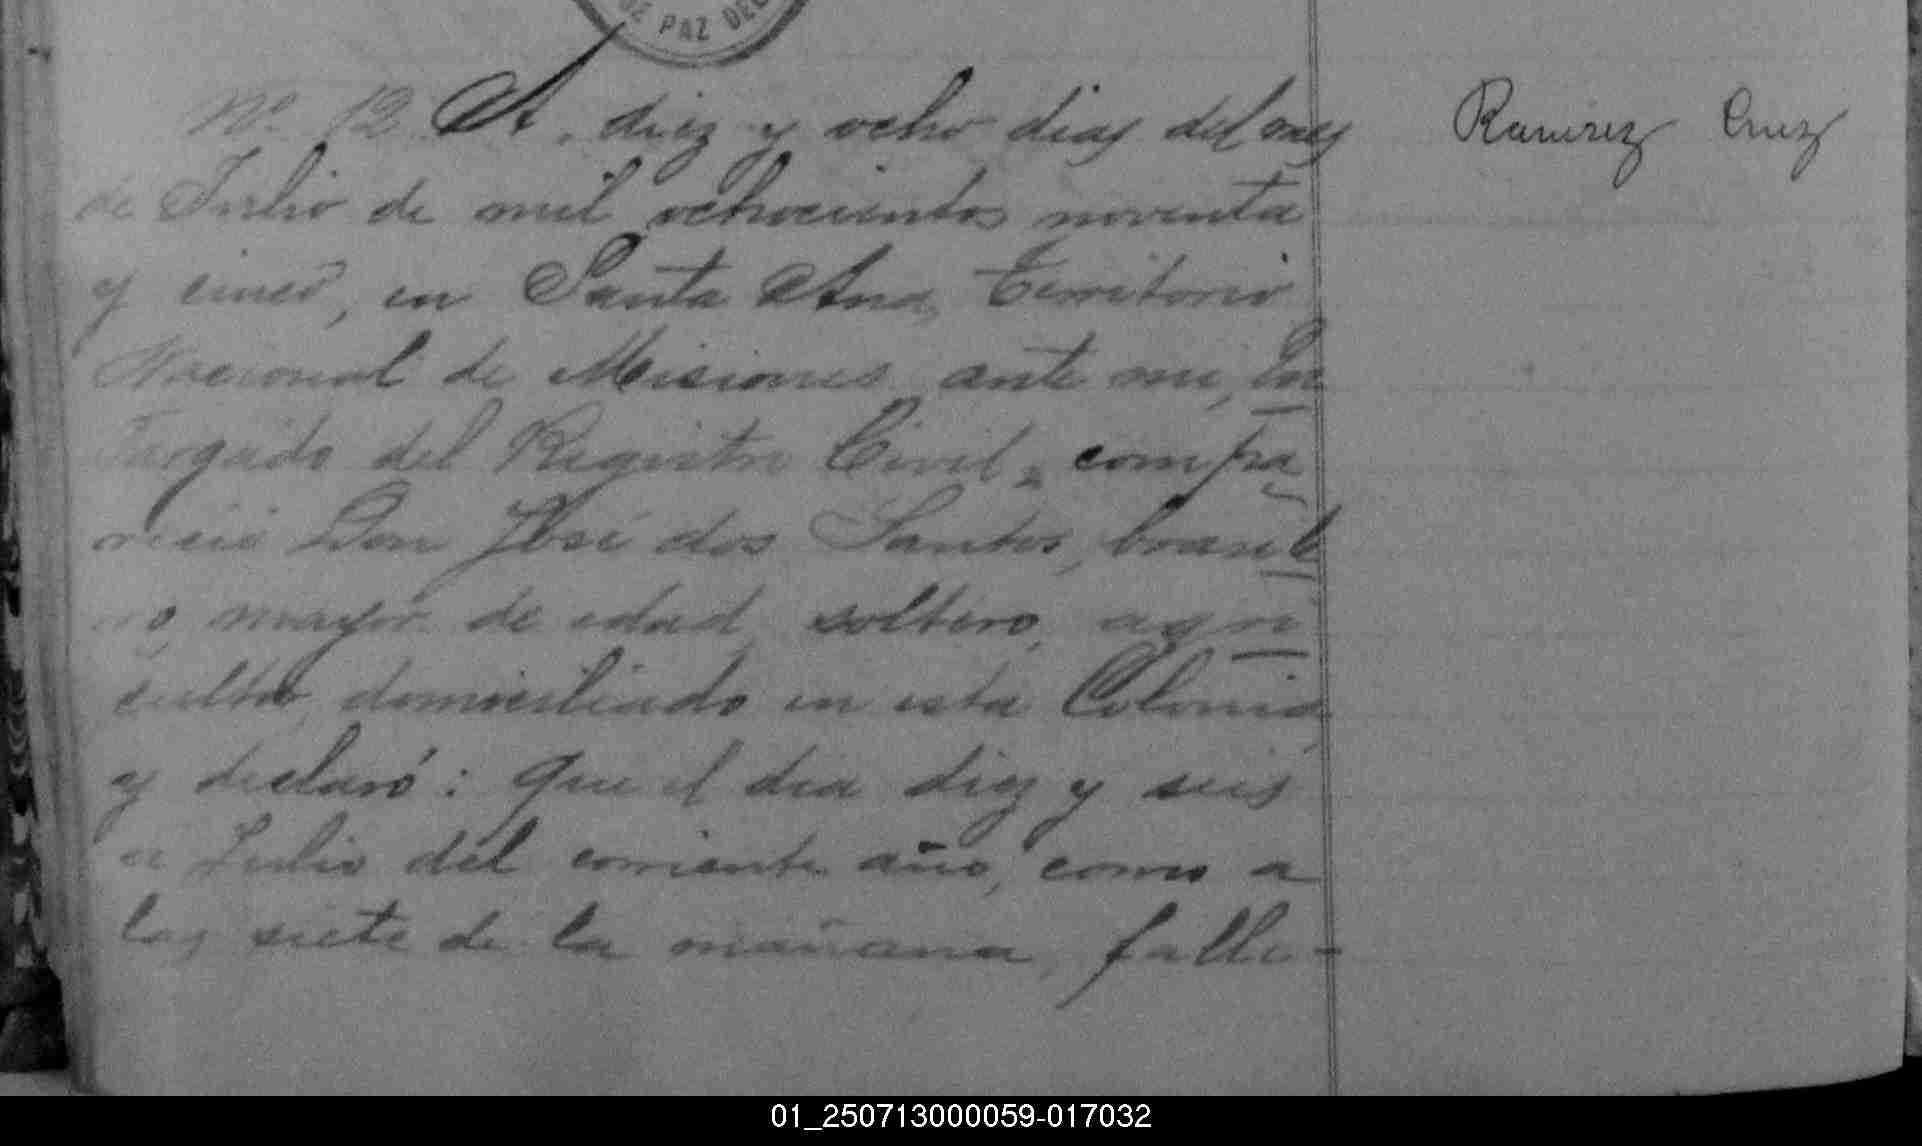 DE PAZ DEL
Nº 12 A. diez y ocho dias del mes
Ramirez Cruz
de Julio de mil ochocientos noventa
y cinco, en Santa Ana, Territorio
Nacional de Misiones, ante mi, En
cargado del Registro Civil, compa
reció Don José dos Santos, brasile
ro, mayor de edad, soltero, agri
cultor, domiciliado en esta Colonia
y declaró: Que el dia diez y seis
de Julio del corriente año, como a
las siete de la mañana, falle-
01_250713000059-017032